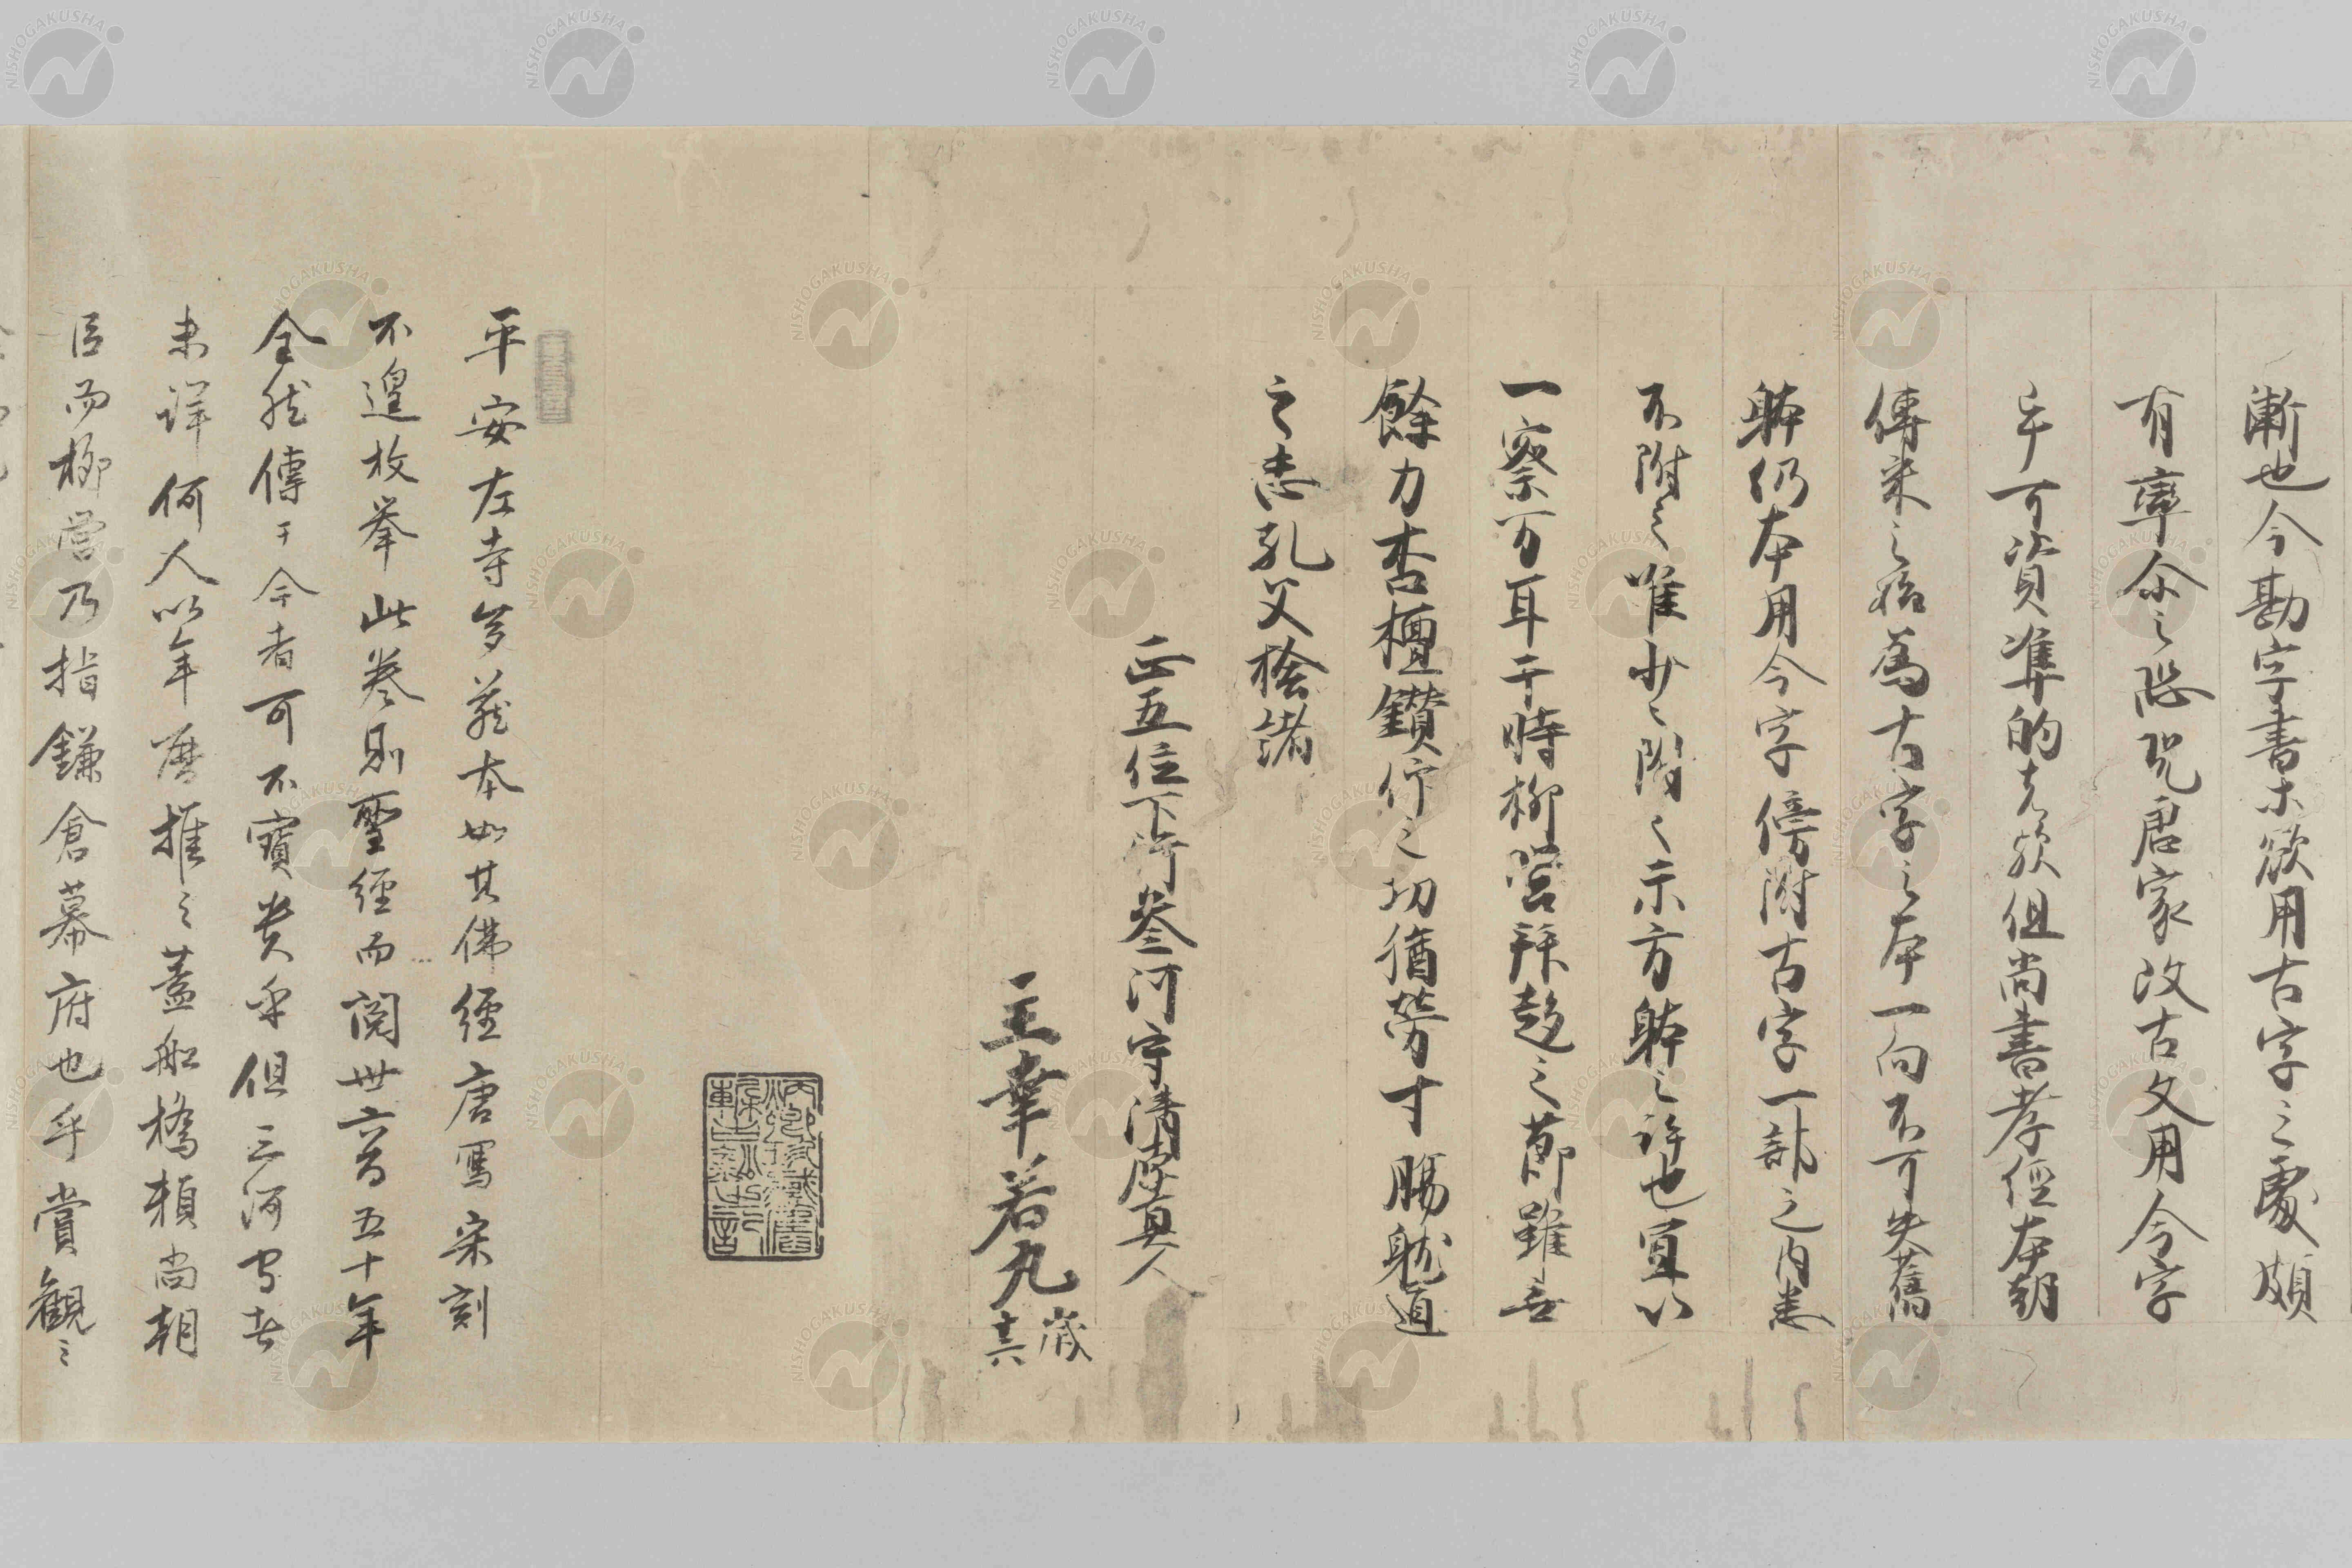 漸也今勘字書等欲用古字之處頗
有率尒之恐况唐家改古文用今字
乎可資準的先于但尚書孝経本朝
傳来之始為古字之本一向不可失舊
躰仍本用今字傍附古字一部之内悉
不附之唯少〻間〻示方躰之許也宜以
一察万耳于時柳営拜趍之節雖無
餘力杏檀鑽仰之切猶労寸腸能遁
之志乳父桧諸
正五位下行参河守清原真人
主幸若丸
十六歳
平安左寺多蔵本如其佛經唐写宋刻
不遑枚挙此巻則聖經而閲世六百五十年
全然傳于今者可不寶貴乎但三河守者
未詳何人以年曆推之蓋船橋頼尚朝
臣而柳営乃指鎌倉幕府也乎賞観之
NISHOGAKUSHA